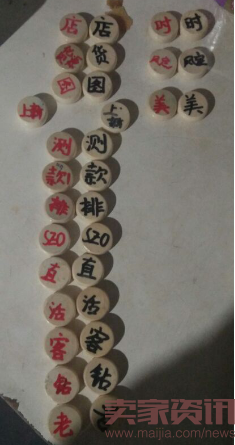 店 店 时 时
货 
困 困 美 美
上新 上新
测 测
款 款
排 排
SZO SZO
直 直
活 活
客 客
钻 钻
老
卖家资讯
www.maijia.com/news